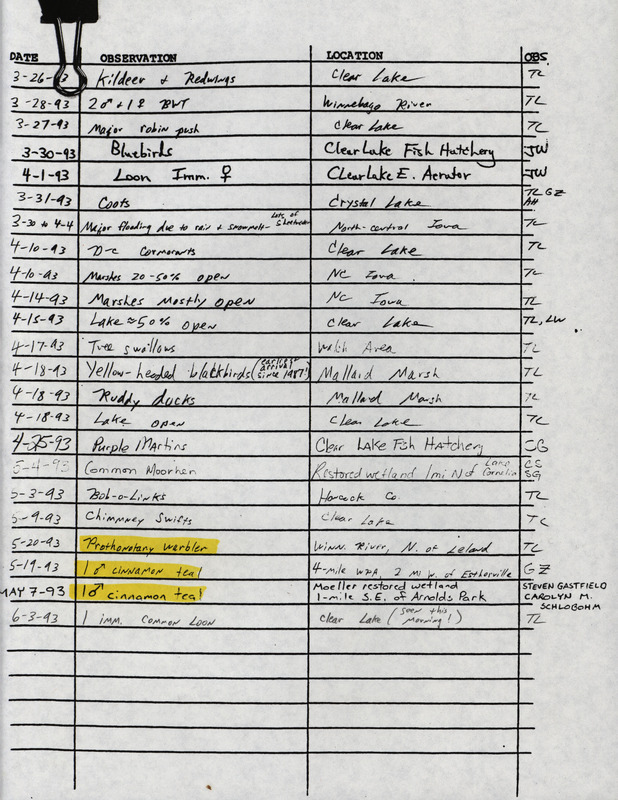 DATE OBSERVATION LOCATION OBS.
3-26-93 Kildeer + Redwings Clear Lake TL
3-28-93 2♂+1♀ BWT Winnebago River TL
3-27-93 Major robin push Clear Lake TL
3-30-93 Bluebirds Clear Lake Fish Hatchery JW
4-1-93 Loon Imm. ♀ Clear Lake E. Aerator JW
3-31-93 Coots Crystal Lake TL GZ AH
3-30 to 4-4 Major flooding due to rain & snowmelt- Lots of Sheetwater North-central Iowa TL
4-10-93 D-c Cormorants Clear Lake TL
4-10-93 Marshes 20-50% open NC Iowa TL
4-14-93 Marshes mostly open NC Iowa TL
4-15-93 Lake ≈50% open Clear Lake TL, LW
4-17-93 Tree swallows Area TL
4-18-93 Yellow-headed blackbirds (earliest arrival since 1987!) Mallard Marsh TL
4-18-93 Ruddy ducks Mallard Marsh TL
4-18-93 Lake open Clear Lake TL
4-25-93 Purple Martins Clear Lake Fish Hatchery CG
5-4-93 Common Moorhen Restored wetland 1mi N of Lake Cornelia CS SG
5-3-93 Bob-o-Links Hancock Co. TL
5-9-93 Chimmney Swifts Clear Lake TL
5-20-93 Prothonotary warbler Winn. River, N. of Leland TL
5-19-93 1 ♂ cinnamon teal 4-mile WPA, 2 mi W. of Estherville GZ
MAY 7-93 1♂ cinnamon teal Moeller restored wetland 1-mile S.E. of Arnolds Park STEVEN GASTFIELD CAROLYN M. SCHLOBOHM
6-3-93 1 imm. COMMON LOON Clear Lake (seen this morning!) TL